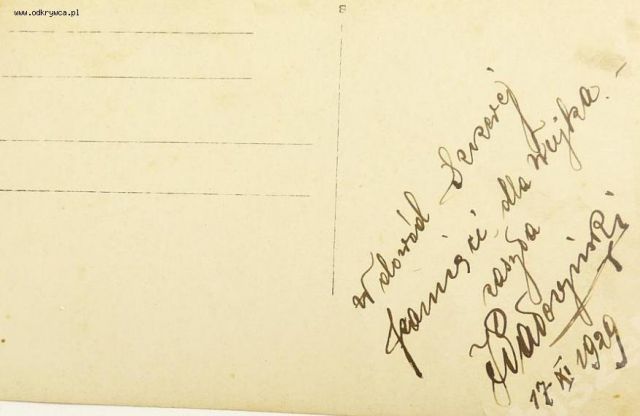 www.odkrywca.pl
8
w dowód Szczerej
pamięci dla Wujka. –
zasyła
17 XI 1929